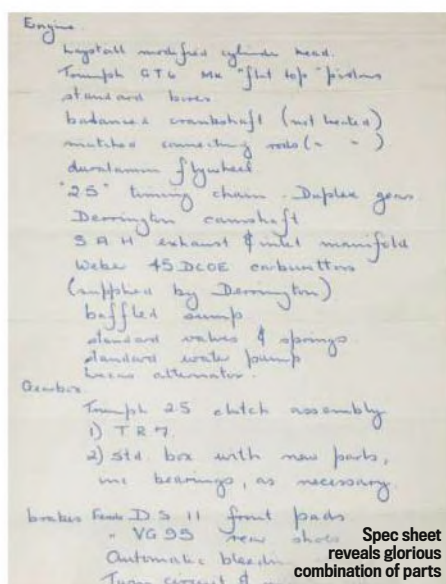 Engine.
Laystall modified cylinder head.
Triumph GT6 Mk "flat top" pistons
standard bores
balanced crankshaft (not heated)
matched connecting rods ( " " )
duralumin flywheel
"25" timing chain. Duplex gears
Derrington camshaft
S A H exhaust & inlet manifold
Weber 45 DCOE carburettors
(supplied by Derrington)
baffled sump
standard valves & springs
standard water pump
Lucas alternator.
Gearbox
Triumph 25 clutch assembly
1) TR7.
2) Std. box with new parts,
inc bearings, as necessary.
brakes Ferodo D S 11 front pads.
" VG 95 rear shoes
Automatic
Spec sheet
reveals glorious
combination of parts